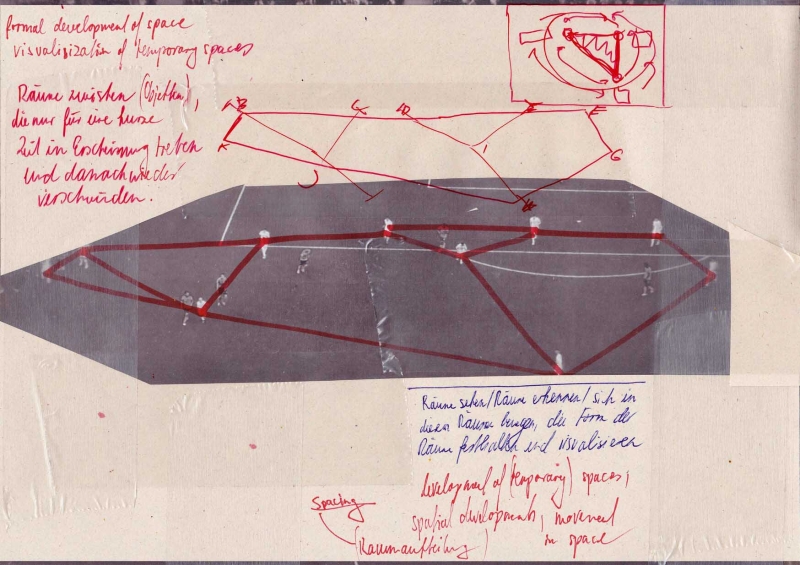 formal development of space
visualisization of temporary spaces
Räume zwischen (Objekten),
die nur für eine kurze
Zeit in Erscheinung treten
und danach wieder
verschwinden.
A B C D E F
K J I H G
Räume sehen/Räume erkennen/sich in
diesen Räumen bewegen, die Form der
Räume festhalten und visualisieren
development of (temporary) spaces,
spatial developments, movement
in space
Spacing
(Raumaufteilung)